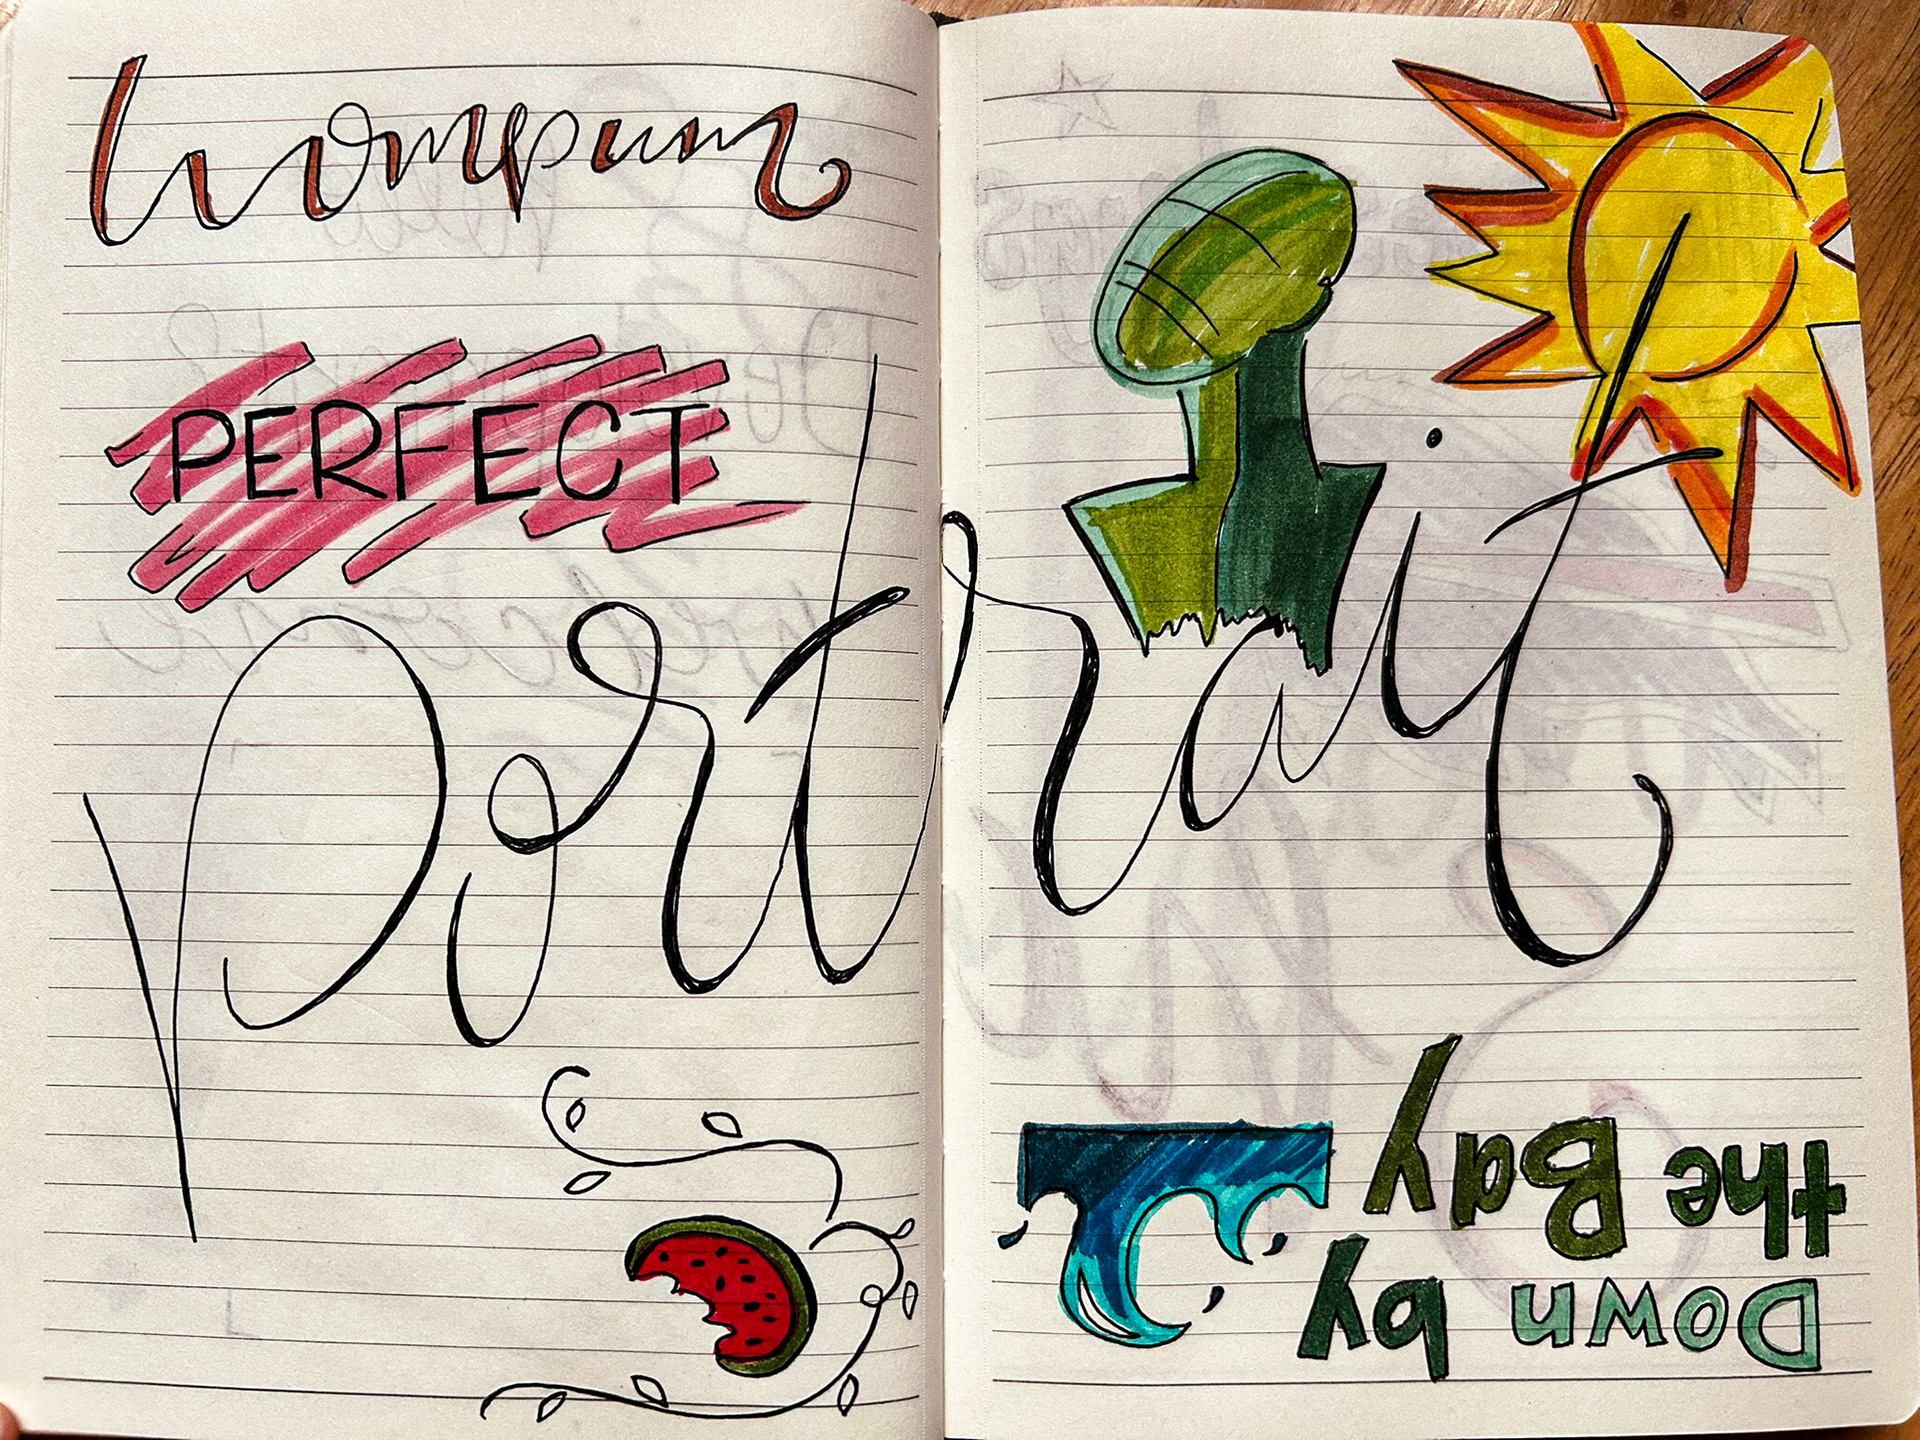 wompum
PERFECT
portrait
Down by
the Bay